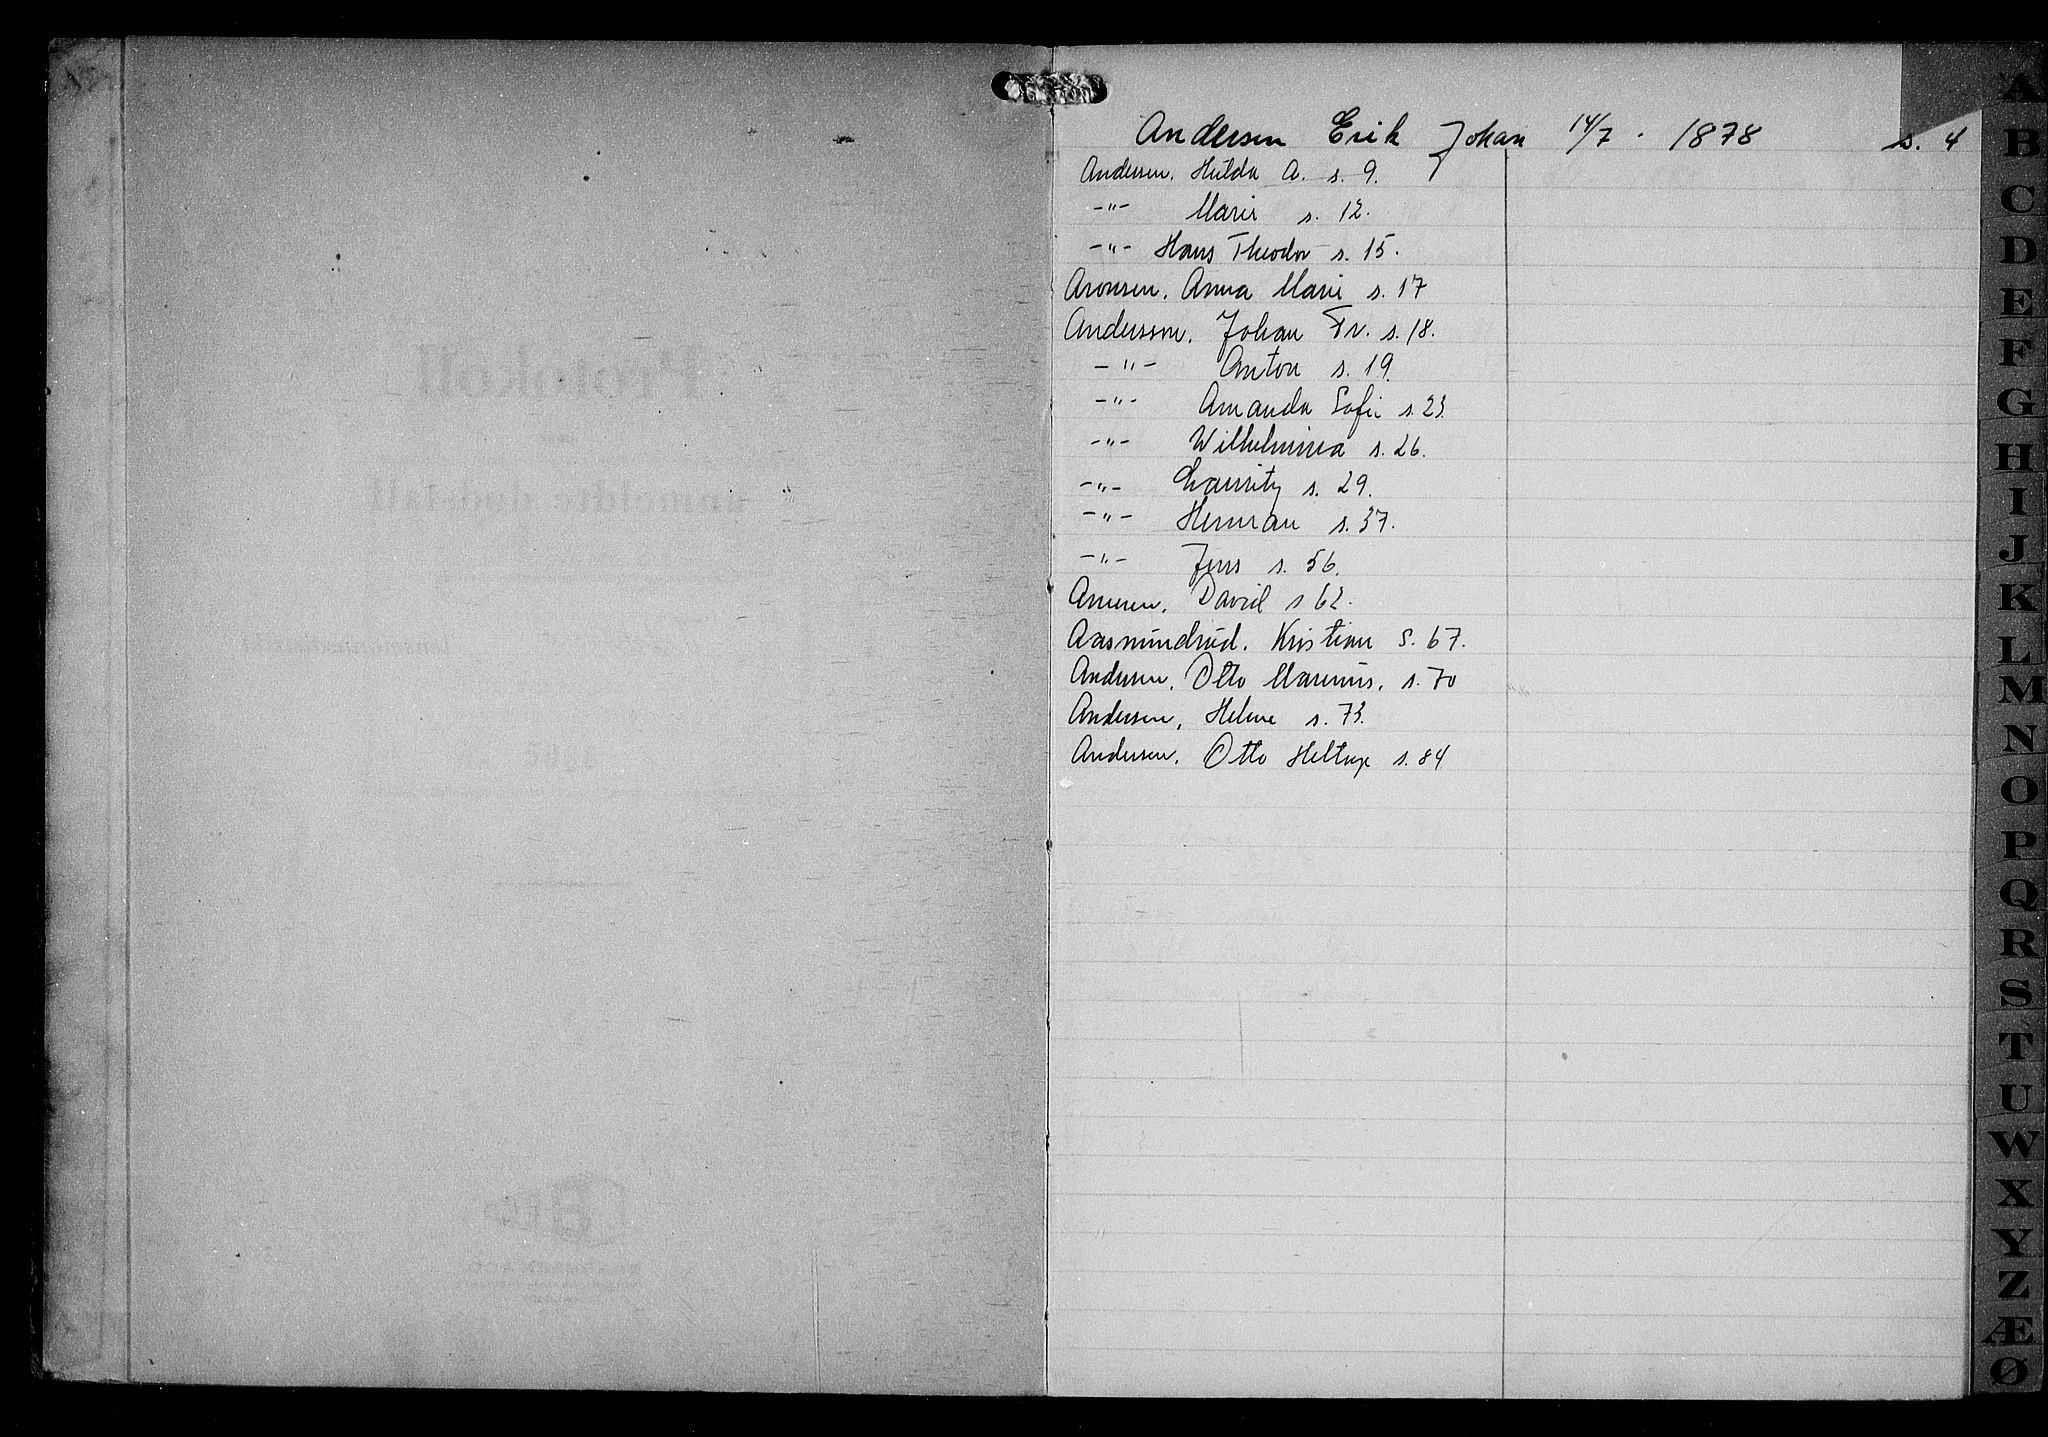 Andersen Erik Johan 14/7 · 1878 s. 4
Andersen, Hilda A. s. 9.
-"- Marie s. 12.
-"- Hans Theodor s. 15.
Aronsen, Anna Marie s. 17
Andersson, Johan Fr. s. 18.
-"- Anton s. 19.
-"- Amanda Sofie s. 23.
-"- Wilhelmina s. 26.
-"- s. 29.
-"- Herman s. 37.
-"- Jens s. 56.
David s 62.
Aasmundrud, Kristian S. 67.
Andersen, Otto Marenius, s. 70
Andersen, Helene s. 73.
Andersen, Otto s. 84
A
B
C
D
E
F
G
H
I
J
K
L
M
N
O
P
Q
R
S
T
U
W
X
Y
Z
Æ
Ø